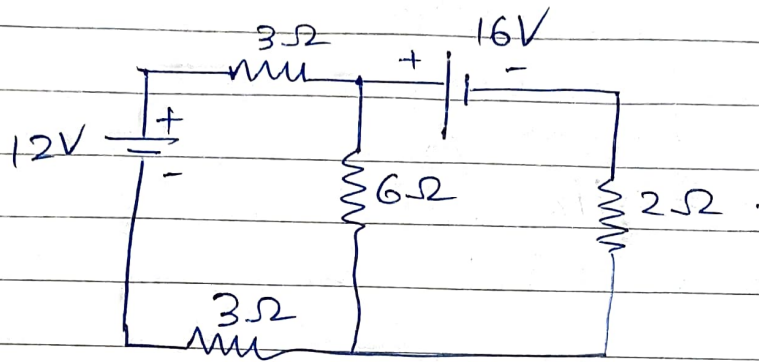 3Ω
16V
+ -
12V
+
-
6Ω
2Ω
3Ω